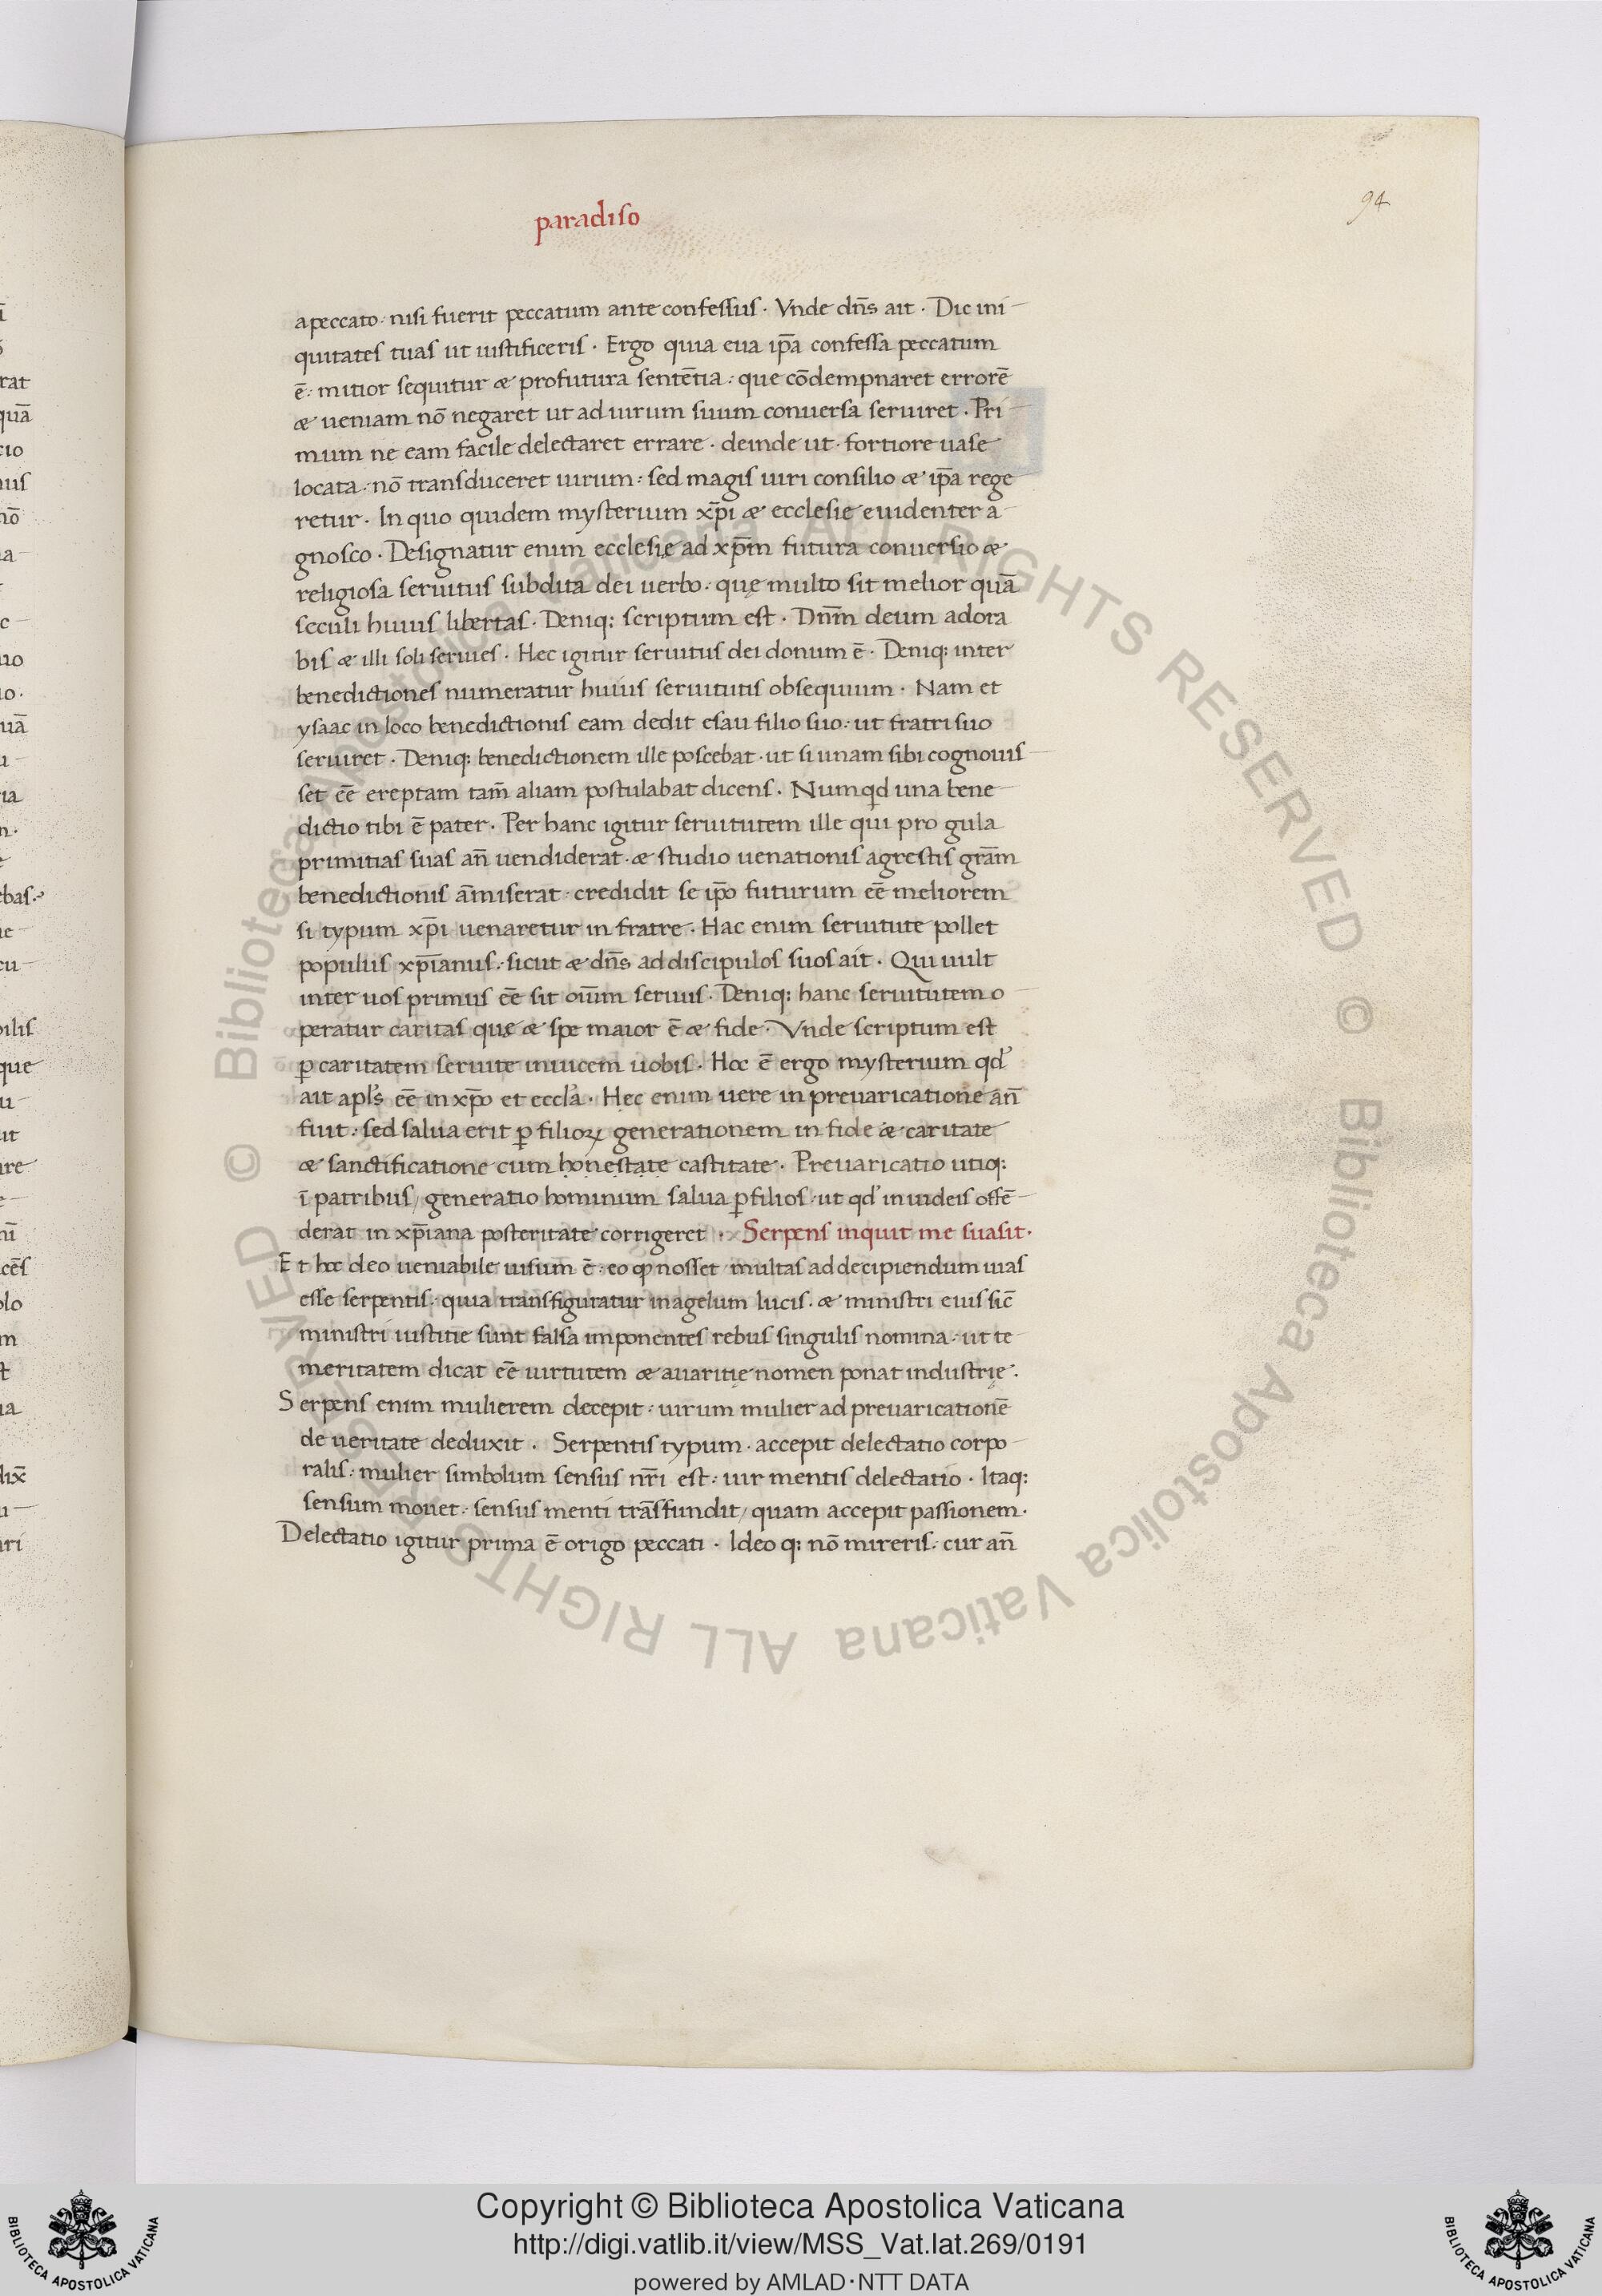 paradiso
94
a peccato· nisi fuerit peccatum ante confessus· Vnde dn̄s ait· Dic ini
quitates tuas ut iustificeris· Ergo quia eua ip̄a confessa peccatum
ē· mitior sequitur & profutura sentētia· que cōdempnaret errorē
& ueniam nō negaret ut ad uirum suum conuersa seruiret· Pri
mum ne eam facile delectaret errare· deinde ut· fortiore uase
locata· nō transduceret uirum· sed magis uiri consilio & ip̄a rege
retur· In quo quidem mysterium xp̄i & ecclesie euidenter a
gnosco· Designatur enim ecclesię ad xp̄m futura conuersio &
religiosa seruitus subdita dei uerbo· quę multo sit melior quā
seculi huius libertas· Deniq: scriptum est· Dn̄m deum adora
bis & illi soli seruies· Hec igitur seruitus dei donum ē· Deniq: inter
benedictiones numeratur huius seruitutis obsequium· Nam et
ysaac in loco benedictionis eam dedit esau filio suo· ut fratri suo
seruiret· Deniq: benedictionem ille poscebat· ut si unam sibi cognouis
set eē ereptam tam̄ aliam postulabat dicens· Numqd una bene
dictio tibi ē pater· Per hanc igitur seruitutem ille qui pro gula
primitias suas an̄ uendiderat· & studio uenationis agrestis grām
benedictionis āmiserat· credidit se ip̄o futurum eē meliorem
si typum xp̄i uenaretur in fratre· Hac enim seruitute pollet
populus xp̄ianus· sicut & dn̄s ad discipulos suos ait· Qui uult
inter uos primus eē sit oīum seruus· Deniq: hanc seruitutem o
peratur caritas quę & spe maior ē & fide· Vnde scriptum est
ꝑ caritatem seruite inuicem uobis· Hoc ē ergo mysterium qd'
ait apl's eē in xp̄o et eccl'a· Hęc enim uere in preuaricatione an̄
fuit· sed salua erit ꝑ filioꝝ generationem in fide & caritate
& sanctificatione cum honestate castitate· Preuaricatio utiq:
ī patribus, generatio hominum salua ꝑ filios· ut qd' in iudeis offē
derat in xp̄iana posteritate corrigeret· Serpens inquit me suasit·
Et hoc deo ueniabile uisum ē· eo ꝙ nosset multas ad decipiendum uias
esse serpentis· quia transfiguratur in agelum lucis· & ministri eius sic̄
ministri iustitie sunt falsa imponentes rebus singulis nomina· ut te
meritatem dicat eē uirtutem & auaritię nomen ponat industrię·
Serpens enim mulierem decepit· uirum mulier ad preuaricationē
de ueritate deduxit· Serpentis typum· accepit delectatio corpo
ralis· mulier simbolum sensus nr̄i est· uir mentis delectatio· Itaq:
sensum mouet· sensus menti trāsfundit, quam accepit passionem·
Delectatio igitur prima ē origo peccati· Ideo q: nō mireris· cur an̄
Copyright © Biblioteca Apostolica Vaticana
http://digi.vatlib.it/view/MSS_Vat.lat.269/0191
powered by AMLAD·NTT DATA